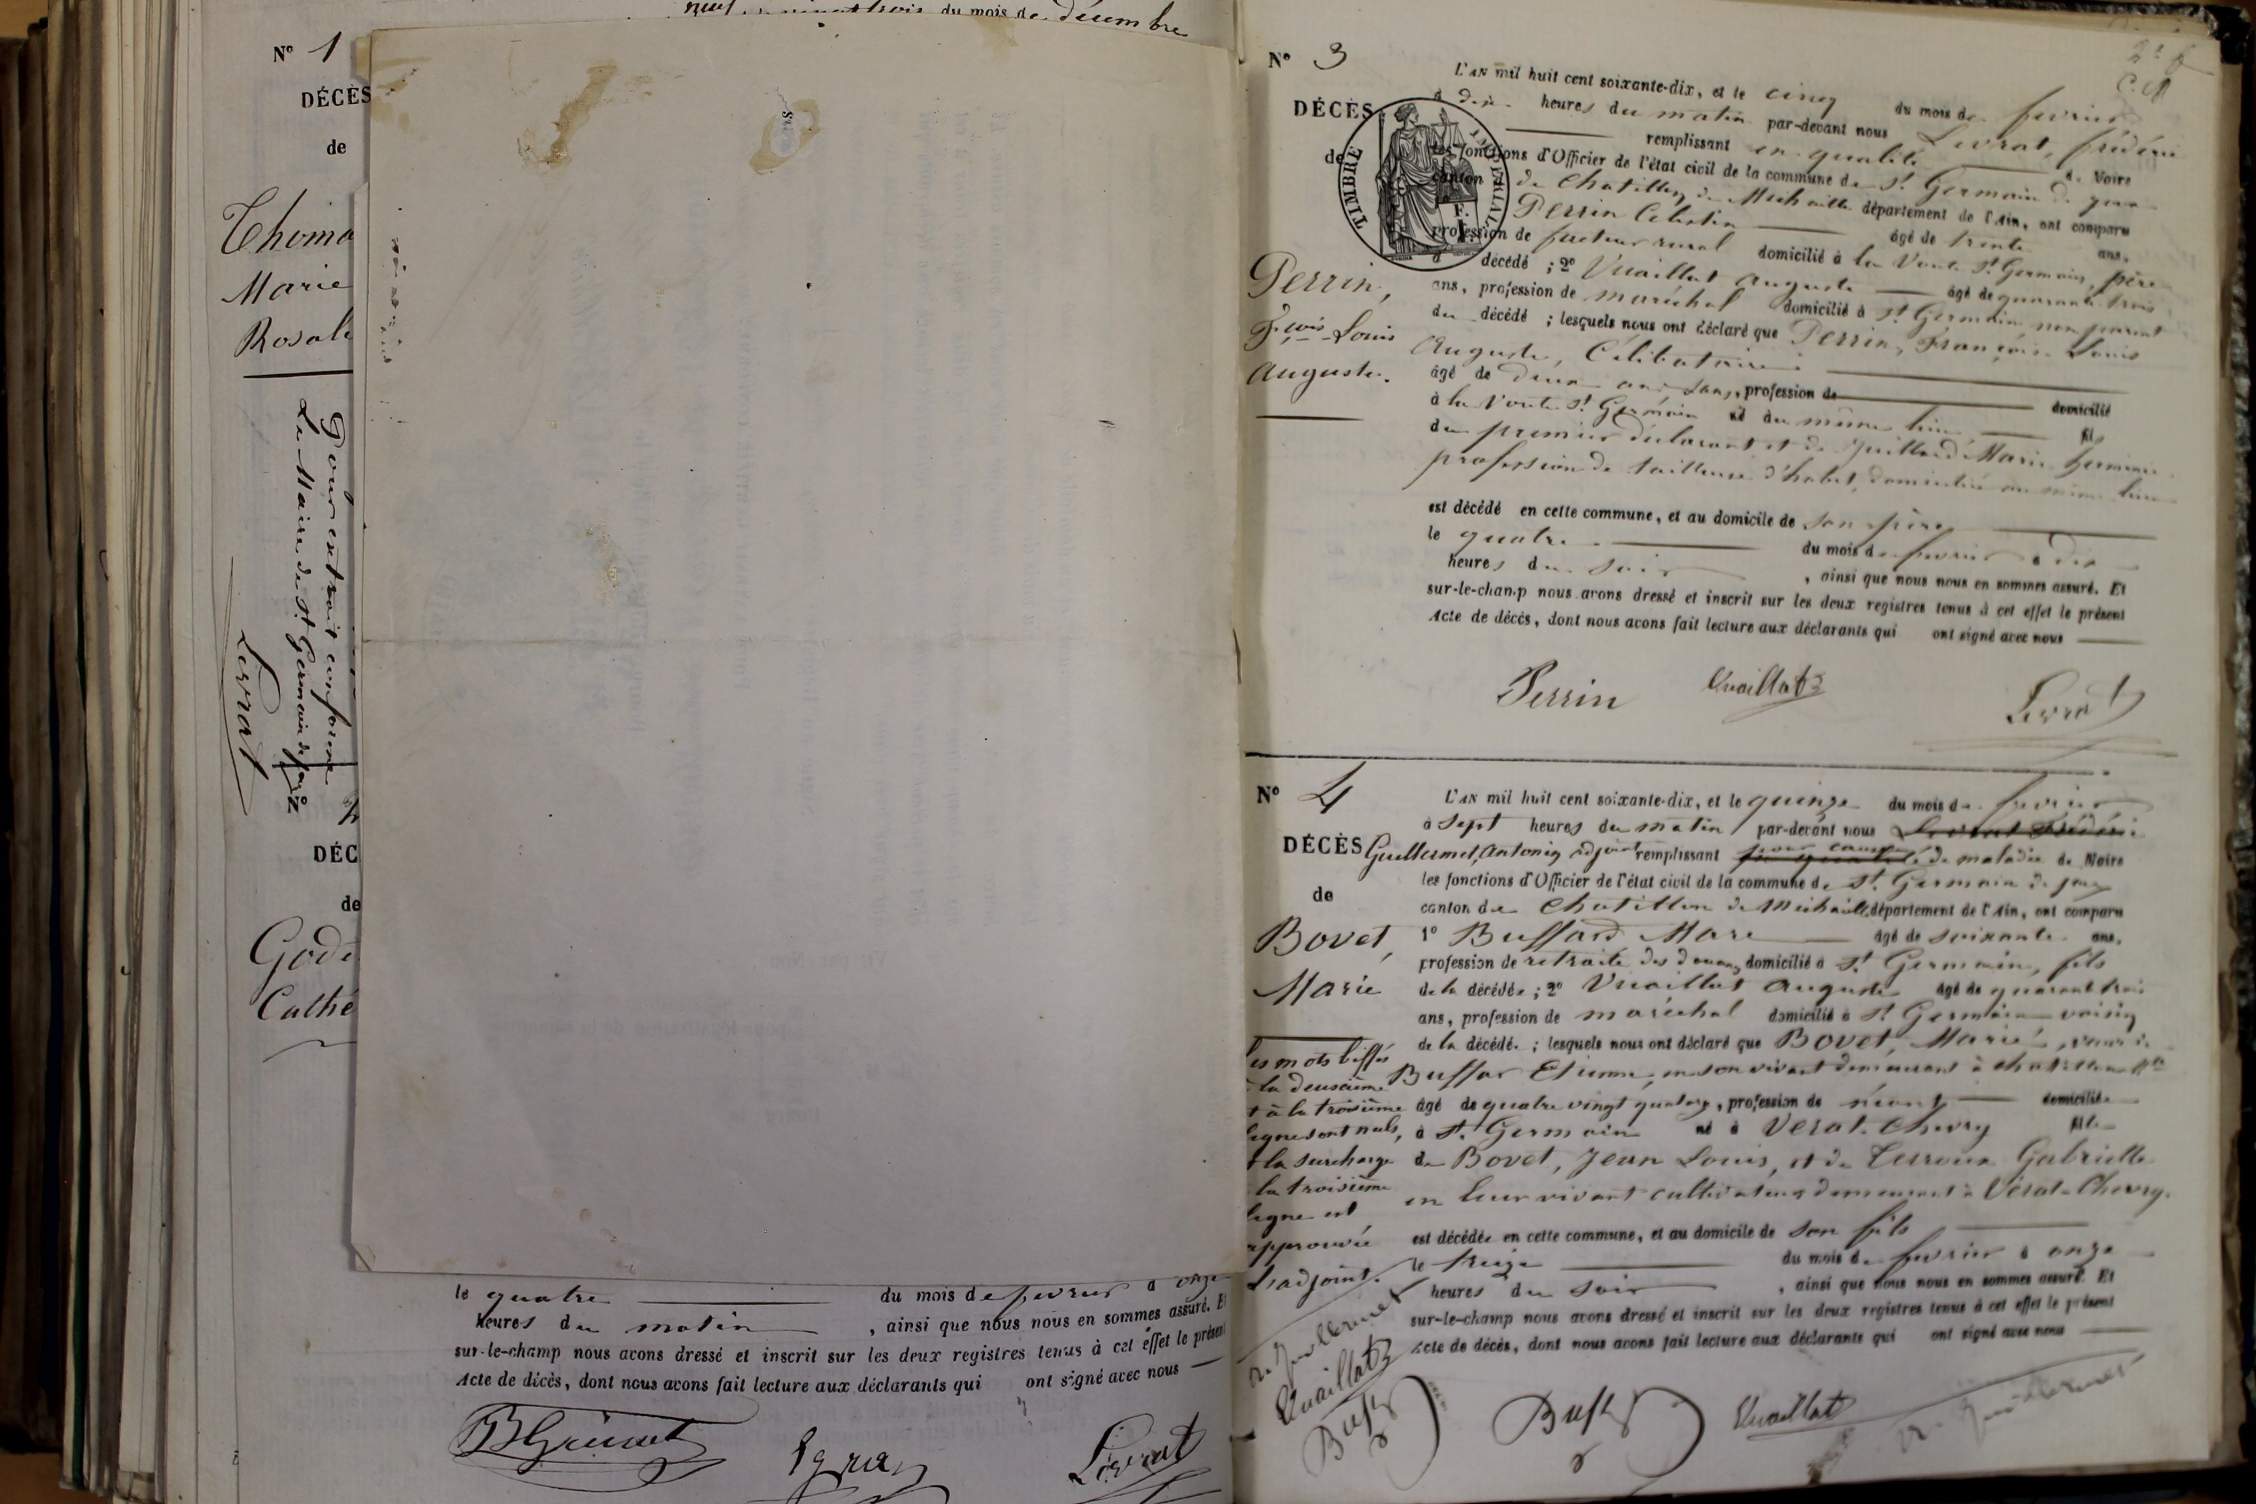 du mois de décembre
N° 1
DÉCÈS
de
Thoma
Marie
Rosali
Pour extrait conforme
Le Maire de St Germain de Joux
Levrat
DÉC
de
Gode
Cathé
le quatre du mois de fevrier à onze
heures du matin , ainsi que nous nous en sommes assuré. Et
sur-le-champ nous avons dressé et inscrit sur les deux registres tenus à cet effet le présent
Acte de décès, dont nous avons fait lecture aux déclarants qui ont signé avec nous
Levrat
N° 3
DÉCÈS
de
TIMBRE IMPÉRIAL
F.
Perrin,
Fçois Louis
Auguste.
L'AN mil huit cent soixante-dix, et le cinq du mois de fevrier
à dix heures du matin par-devant nous Levrat, frédéric
remplissant en qualité de Maire
les fonctions d'Officier de l'état civil de la commune de St Germain de Joux
canton de Chatillon de Michaille département de l'Ain, ont comparu
Perrin Célestin âgé de trente ans,
profession de facteur rural domicilié à la Voute St Germain, père
du décédé ; 2° Vuaillat Auguste âgé de quarante trois
ans, profession de maréchal domicilié à St Germain non parent
du décédé ; lesquels nous ont déclaré que Perrin, François Louis
Auguste, Célibataire
âgé de deux ans, profession de domicilié
à la Voute St Germain né au même lieu fils
du premier déclarant et de Juillard Marie
profession de tailleuse d'habit, domiciliée au même lieu
est décédé en cette commune, et au domicile de son père
le quatre du mois de fevrier à dix
heures du soir , ainsi que nous nous en sommes assuré. Et
sur-le-champ nous avons dressé et inscrit sur les deux registres tenus à cet effet le présent
Acte de décès, dont nous avons fait lecture aux déclarants qui ont signé avec nous
Perrin Vuaillat Levrat
N° 4
DÉCÈS
de
Bovet,
Marie
L'AN mil huit cent soixante-dix, et le quinze du mois de fevrier
à sept heures du matin par-devant nous Levrat Frédéric
Guillermet, Antonin adjoint remplissant pour cause de maladie de Maire
les fonctions d'Officier de l'état civil de la commune de St Germain de Joux
canton de Chatillon de Michaille département de l'Ain, ont comparu
1° Buffard Marc âgé de soixante ans,
profession de retraité des douanes domicilié à St Germain, fils
de la décédée ; 2° Vuaillat Auguste âgé de quarante trois
ans, profession de maréchal domicilié à St Germain voisin
de la décédée ; lesquels nous ont déclaré que Bovet, Marie, veuve de
Buffar Etienne, en son vivant demeurant à Chatillon
âgé de quatre vingt quatorze, profession de néant domiciliée
à St Germain né à Verat-Chevry fille
de Bovet, Jean Louis, et de Gabrielle
en leur vivant cultivateurs demeurant à Vérat-Chevry.
est décédée en cette commune, et au domicile de son fils
le treize du mois de fevrier à onze
heures du soir , ainsi que nous nous en sommes assuré. Et
sur-le-champ nous avons dressé et inscrit sur les deux registres tenus à cet effet le présent
Acte de décès, dont nous avons fait lecture aux déclarants qui ont signé avec nous
les mots biffés
à la deuxième
et à la troisième
ligne sont nuls,
et la surcharge
à la troisième
ligne est
approuvée
L'adjoint.
A. Guillermet
Vuaillat
Buffar
Buffar Vuaillat A. Guillermet